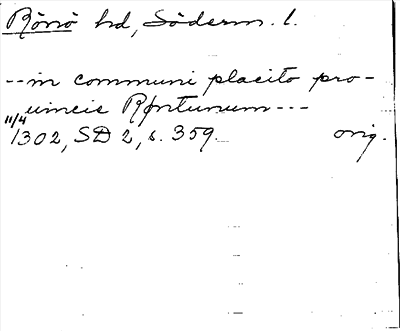 Rönö hd, Söderm. l.
-- in communi placito pro-
uincie Røntunum ---
11/4 1302, SD 2, s. 359. orig.